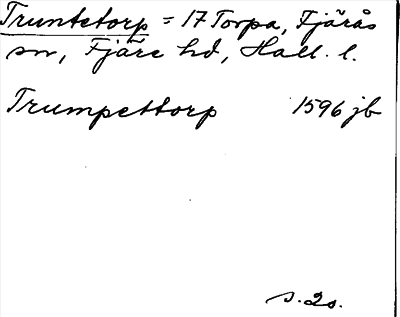 Truntetorp = 17 Torpa, Fjärås
sn, Fjäre hd, Hall. l.
Trumpettorp 1596 jb
s. 20.